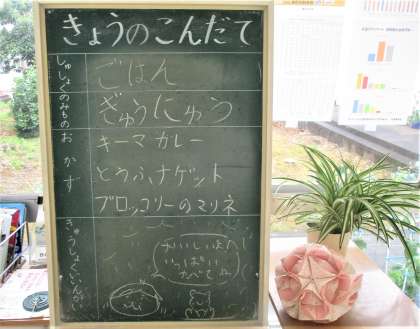 きょうのこんだて
しゅしょくのみもの
ごはん
ぎゅうにゅう
おかず
キーマカレー
とうふナゲット
ブロッコリーのマリネ
きゅうしょくいがい
おいしいよ
いっぱい
たべてね